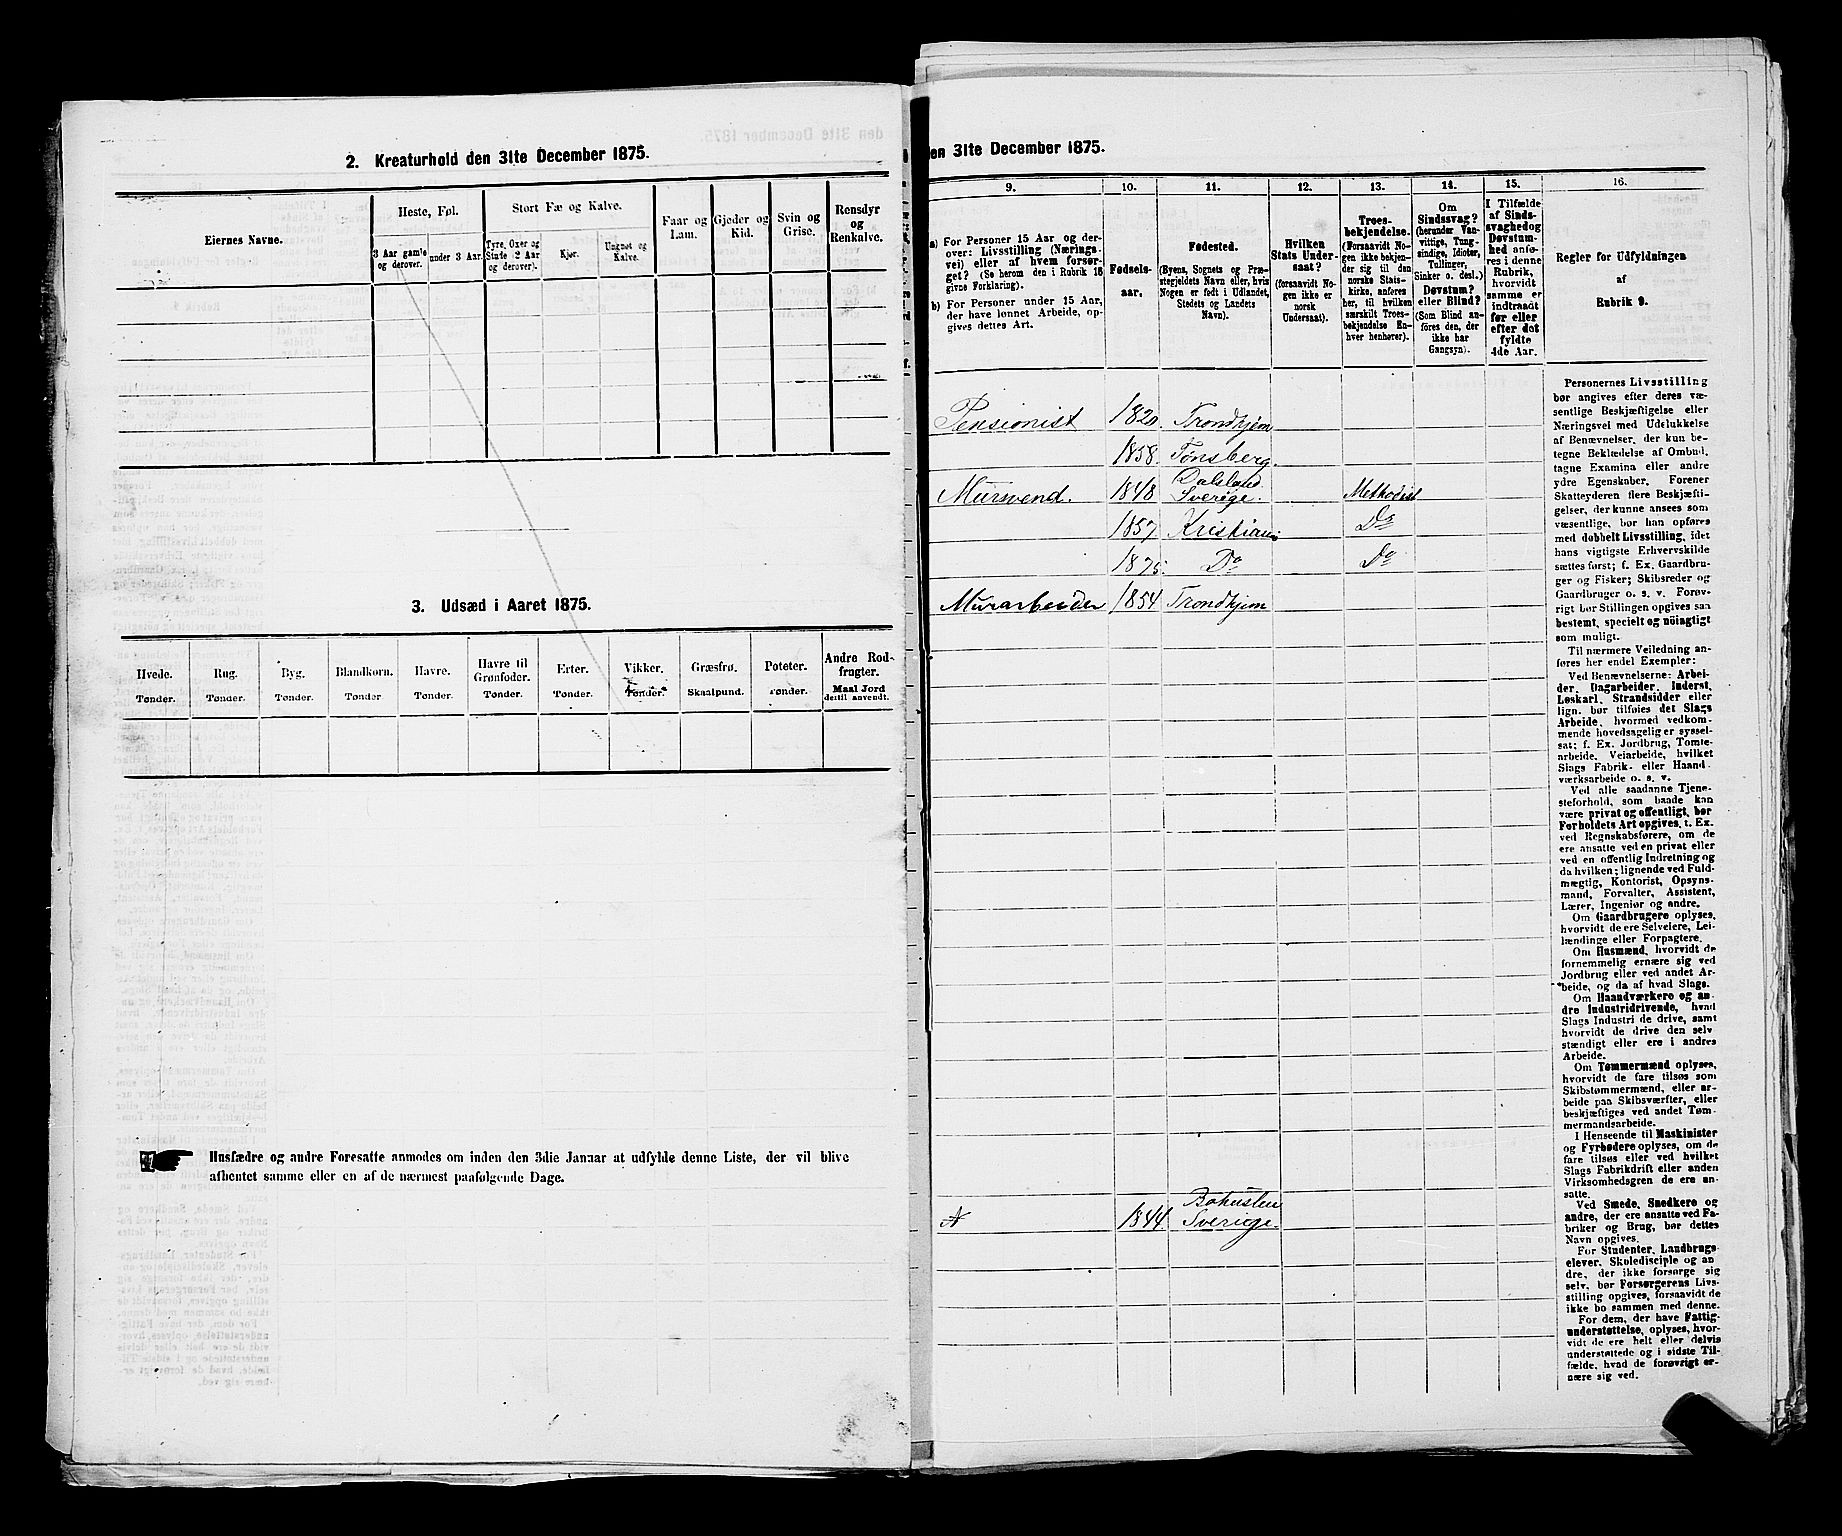 2. Kreaturhold den 31te December 1875.
Eiernes Navne.
Heste, Føl.
3 Aar gamle og derover.
under 3 Aar.
Stort Fæ og Kalve.
Tyre, Oxer og Stude (2 Aar og derover).
Kjør.
Ungnøt og Kalve.
Faar og Lam.
Gjeder og Kid.
Svin og Grise.
Rensdyr og Renkalve.
3. Udsæd i Aaret 1875.
Hvede. Rug. Byg. Blandkorn. Havre. Havre til Grønfoder. Erter. Vikker. Græsfrø. Poteter. Andre Rodfrugter.
Tønder. Tønder. Tønder. Tønder. Tønder. Tønder. Tønder. Tønder. Skaalpund. Tønder. Maal Jord dertil anvendt.
Husfædre og andre Foresatte anmodes om inden den 3die Januar at udfylde denne Liste, der vil blive
afhentet samme eller en af de nærmest paafølgende Dage.
den 31te December 1875.
9. 10. 11. 12. 13. 14. 15. 16.
a) For Personer 15 Aar og der-
over: Livsstilling (Nærings-
vei) eller af hvem forsør-
get? (Se herom den i Rubrik 16
givne Forklaring).
b) For Personer under 15 Aar,
der have lønnet Arbeide, op-
gives dettes Art.
Fødsels-
aar.
Fødested.
(Byens, Sognets og Præ-
stegjeldets Navn eller, hvis
Nogen er født i Udlandet,
Stedets og Landets
Navn).
Hvilken
Stats Under-
saat?
(forsaavidt No-
gen ikke er
norsk
Undersaat).
Troes-
bekjendelse.
(Forsaavidt No-
gen ikke bekjen-
der sig til den
norske Stats-
kirke, anføres
her, til hvilken
særskilt Troes-
bekjendelse En-
hver henhører).
Om
Sindssvag?
(herunder Van-
vittige, Tung-
sindige, Idioter,
Tullinger,
Sinker o. desl.)
Døvstum?
eller Blind?
(Som Blind an-
føres den, der
ikke har
Gangsyn).
I Tilfælde
af Sinds-
svaghed og
Døvstum-
hed anfø-
res i denne
Rubrik,
hvorvidt
samme er
indtraadt
før eller
efter det
fyldte
4de Aar.
Regler for Udfyldningen
af
Rubrik 9.
Pensionist 1820. Trondhjem
1858. Tønsberg.
Mursvend. 1848 Dalsland Sverige. Methodist
1857 Kristiania Do
1875. Do Do
Murarbeider 1854 Trondhjem
1844. Bohuslen Sverige.
Personernes Livsstilling
bør angives efter deres væ-
sentlige Beskjæftigelse eller
Næringsvei med Udelukkelse
af Benævnelser, der kun be-
tegne Beklædelse af Ombud,
tagne Examina eller andre
ydre Egenskaber. Forener
Skatteyderen flere Beskjæfti-
gelser, der kunne ansees som
væsentlige, bør han opføres
med dobbelt Livsstilling, idet
hans vigtigste Erhvervskilde
sættes først; f. Ex. Gaardbru-
ger og Fisker; Skibsreder og
Gaardbruger o. s. v. Forøv-
rigt bør Stillingen opgives saa
bestemt, specielt og nöiagtigt
som muligt.
Til nærmere Veiledning an-
føres her endel Exempler:
Ved Benævnelserne: Arbei-
der, Dagarbeider, Inderst,
Løskarl, Strandsidder eller
lign. bør tilføies det Slags
Arbeide, hvormed vedkom-
mende hovedsagelig er syssel-
sat; f. Ex. Jordbrug, Tomte-
arbeide, Veiarbeide, hvilket
Slags Fabrik- eller Haand-
værksarbeide o. s. v.
Ved alle saadanne Tjene-
steforhold, som baade kan
være privat og offentligt, bør
Forholdets Art opgives, t. Ex.
ved Regnskabsførere, om de
ere ansatte ved en privat eller
ved en offentlig Indretning og
da hvilken; lignende ved Fuld-
mægtig, Kontorist, Opsyns-
mand, Forvalter, Assistent,
Lærer, Ingeniør og andre.
Om Gaardbrugere oplyses,
hvorvidt de ere Selveiere, Lei-
lændinge eller Forpagtere.
Om Husmænd, hvorvidt de
fornemmelig ernære sig ved
Jordbrug eller ved andet Ar-
beide, og da af hvad Slags.
Om Haandværkere og an-
dre Industridrivende, hvad
Slags Industri de drive, samt
hvorvidt de drive den selv-
stændigt eller ere i andres
Arbeide.
Om Tømmermænd oplyses,
hvorvidt de fare tilsøs som
Skibstømmermænd, eller ar-
beide paa Skibsværfter, eller
beskjæftiges ved andet Tøm-
mermandsarbeide.
I Henseende til Maskinister
og Fyrbødere oplyses, om de
fare tilsøs eller ved hvilket
Slags Fabrikdrift eller anden
Virksomhedsgren de ere an-
satte.
Ved Smede, Snedkere og
andre, der ere ansatte ved Fa-
briker og Brug, bør dettes
Navn opgives.
For Studenter, Landbrugs-
elever, Skoledisciple og an-
dre, der ikke forsørge sig
selv, bør Forsørgerens Livs-
stilling opgives, forsaavidt de
ikke bo sammen med denne.
For dem, der have Fattig-
understøttelse, oplyses, hvor-
vidt de ere helt eller delvis
understøttede og i sidste Til-
fælde, hvad de forøvrigt er-
nære sig ved.